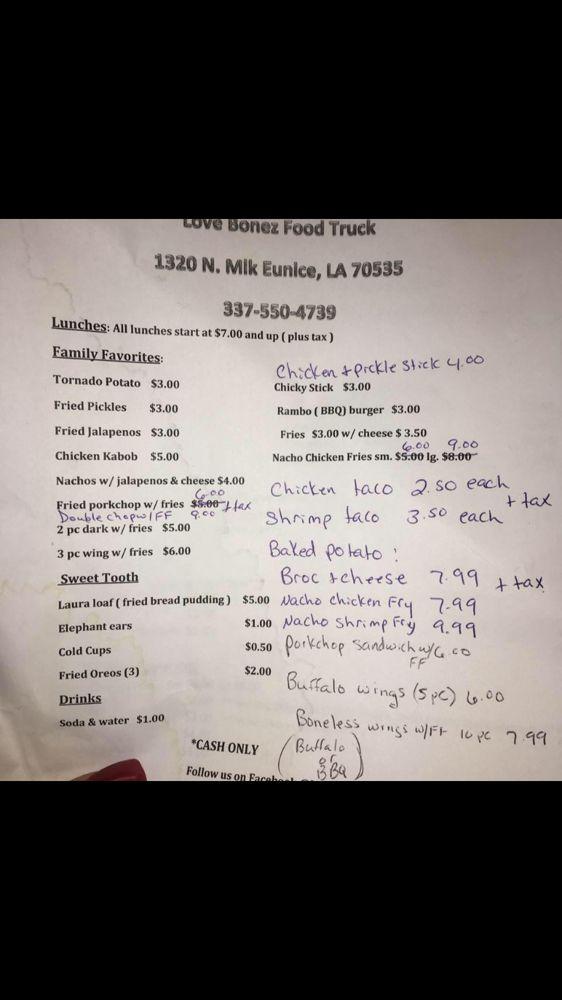 Love Bonez Food Truck
1320 N. Mlk Eunice, LA 70535
337-550-4739
Lunches: All lunches start at $7.00 and up ( plus tax )
Family Favorites:
Chicken + Pickle Stick 4.00
Tornado Potato $3.00
Chicky Stick $3.00
Fried Pickles $3.00
Rambo ( BBQ) burger $3.00
Fried Jalapenos $3.00
Fries $3.00 w/ cheese $ 3.50
6.00 9.00
Chicken Kabob $5.00
Nacho Chicken Fries sm. $5.00 lg. $8.00
Nachos w/ jalapenos & cheese $4.00
Chicken taco 2.50 each
+ tax
6.00
Fried porkchop w/ fries $5.00 + tax
Double chop w/ FF 9.00
Shrimp taco 3.50 each
2 pc dark w/ fries $5.00
3 pc wing w/ fries $6.00
Baked potato :
Sweet Tooth
Broc + cheese 7.99 + tax
Laura loaf ( fried bread pudding ) $5.00
Nacho chicken Fry 7.99
Elephant ears $1.00
Nacho Shrimp Fry 9.99
Cold Cups $0.50
Porkchop Sandwich w/ 6.00
FF
Fried Oreos (3) $2.00
Buffalo wings (5 pc) 6.00
Drinks
Soda & water $1.00
Boneless wings w/FF 10 pc 7.99
*CASH ONLY
(Buffalo
or
BBQ)
Follow us on